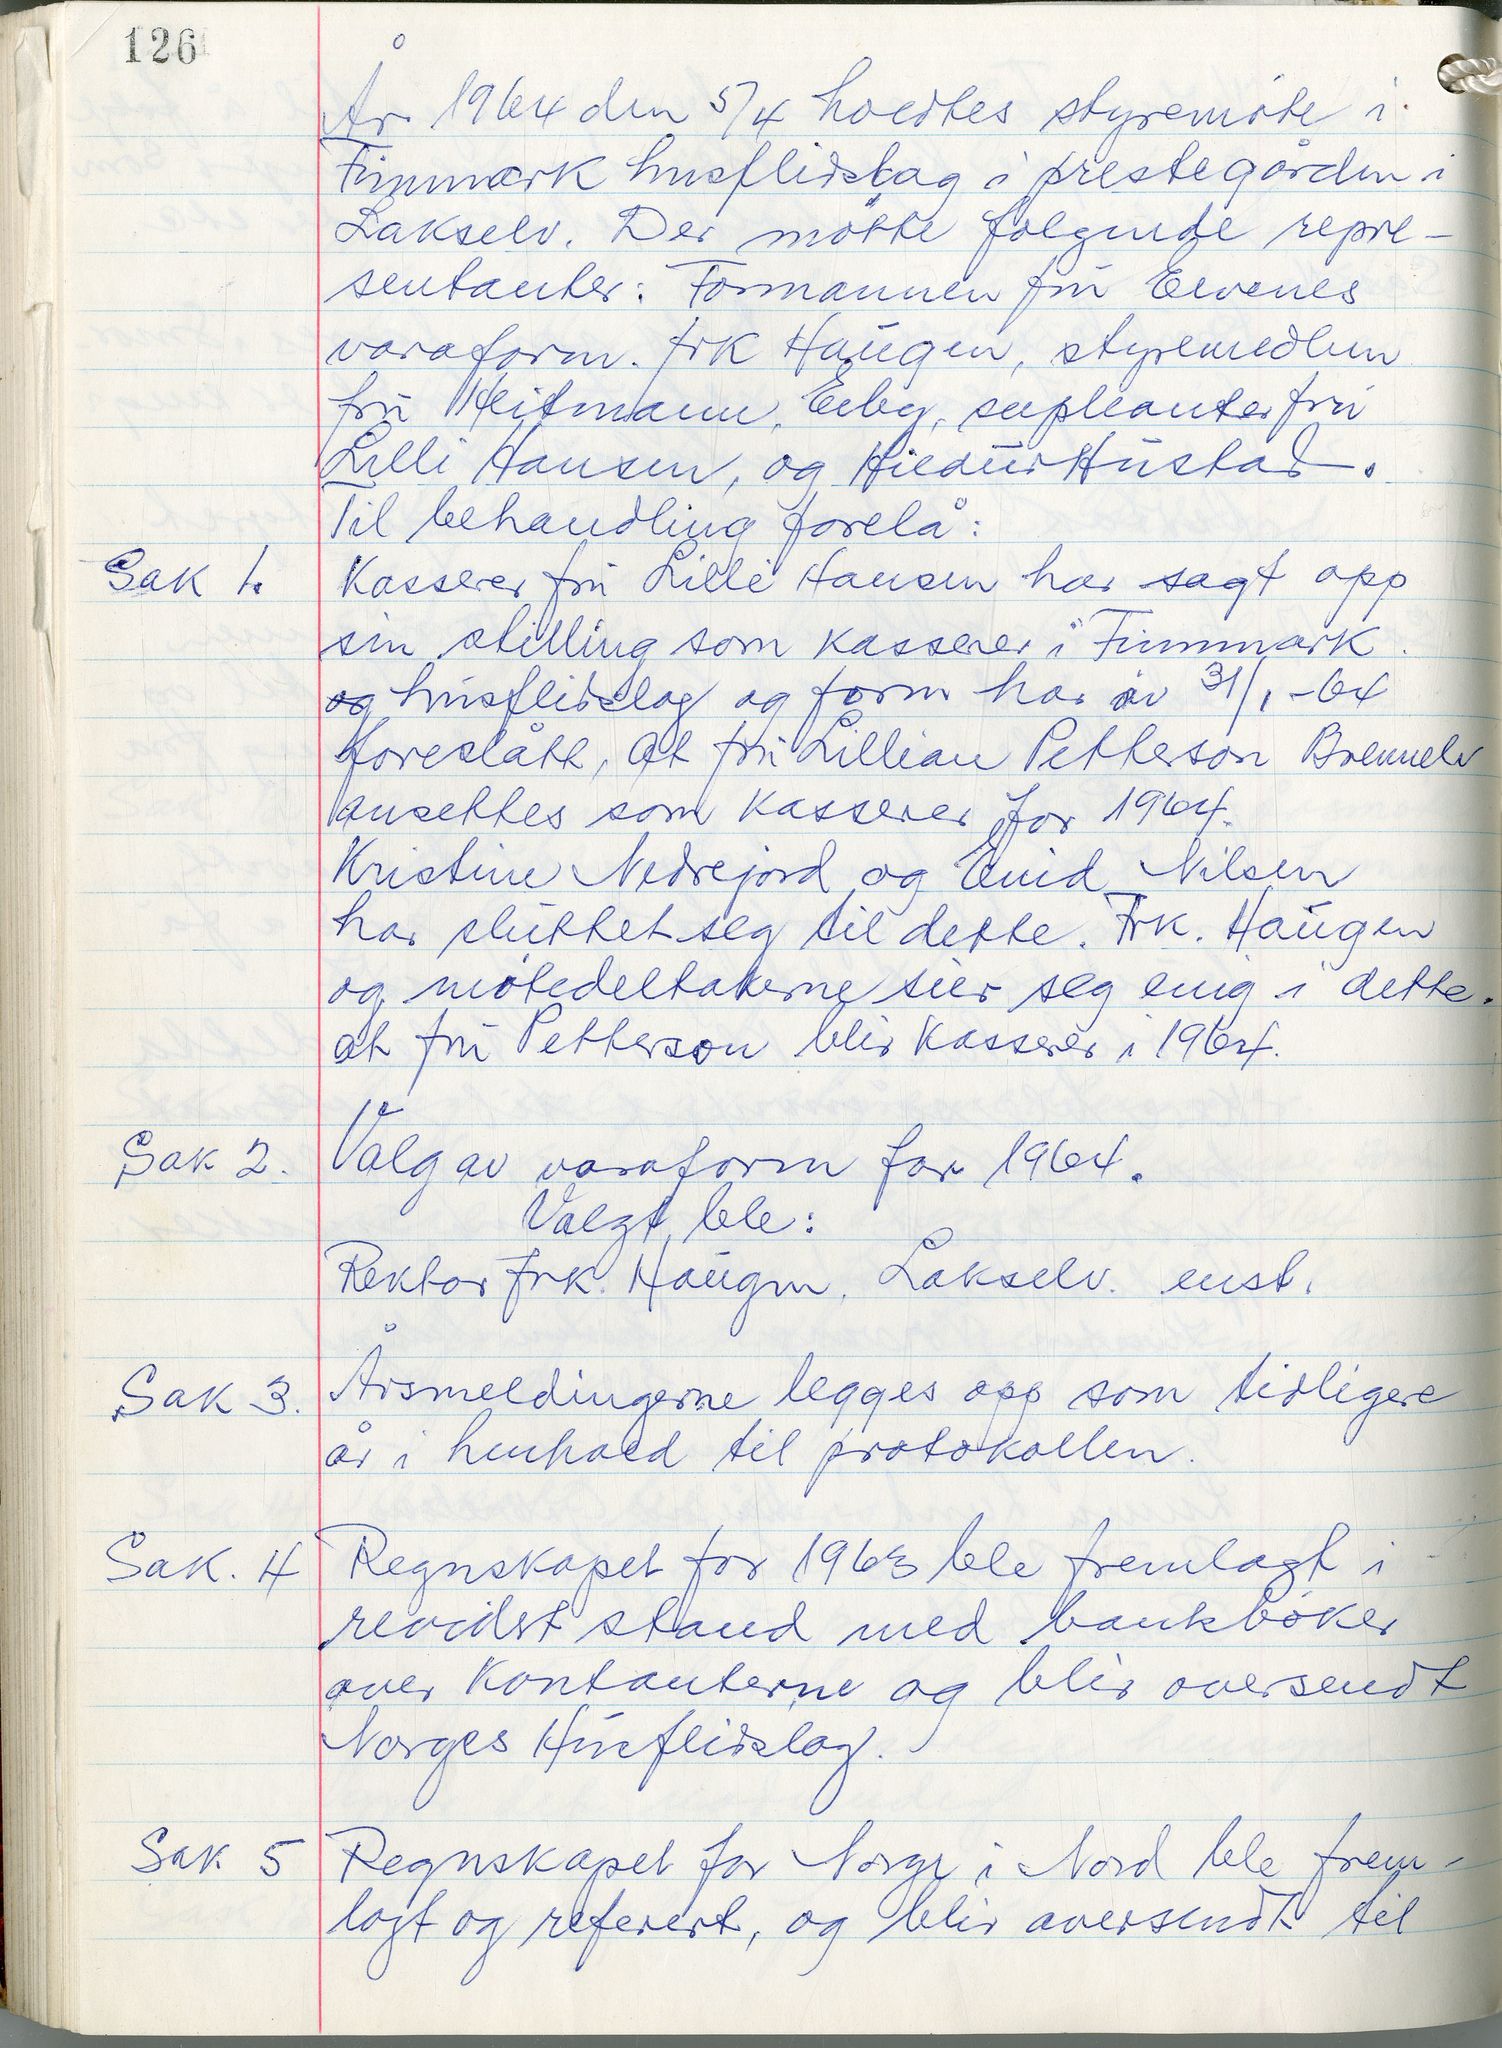 126
År 1964 den 5/4 holdtes styremøte i
Finnmark husflidslag i prestegården i
Lakselv. Der møtte følgende repre-
sentanter: Formannen frú Elvenes
varaform. frk Haúgen, styremedlem
frú Heitmann, Erby, supleanter frú
Lilli Hansen, og Hildúr Hústad.
Til behandling forelå:
Sak 1. Kasserer frú Lilli Hansen har sagt opp
sin stilling som kasserer i Finnmark
og húsflidslag og form har av 31/1 -64
foreslått, at frú Lillian Petterson Brennelv
ansettes som kasserer for 1964.
Kristine Nedrejord og Enid Nilsen
har slúttet seg til dette. Frk. Haúgen
og møtedeltakerne sier seg enig i dette.
at frú Petterson blir kasserer i 1964.
Sak 2. Valg av varaform for 1964.
Valgt ble:
Rektor frk. Haúgen, Lakselv. enst.
Sak 3. Årsmeldingerne legges opp som tidligere
år i henhold til protokollen.
Sak. 4 Regnskapet for 1963 ble fremlagt i
revidert stand med bankbøker
over kontanterne og blir oversendt
Norges Húsflidslag.
Sak 5 Regnskapet for Norge i Nord ble frem-
lagt og referert, og blir oversendt til